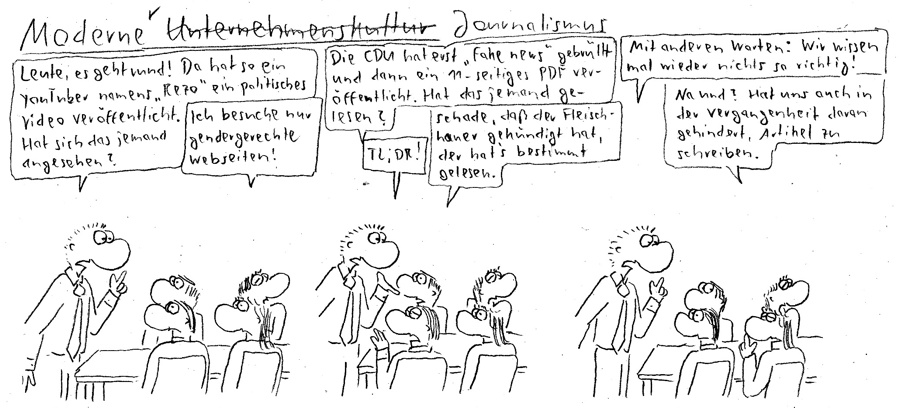 Moderne Unternehmenskultur Journalismus
Leute, es geht rund! Da hat so ein
YouTuber namens „Rezo" ein politisches
Video veröffentlicht.
Hat sich das jemand
angesehen?
Ich besuche nur
gendergerechte
Webseiten!
Die CDU hat erst „Fake news" gebrüllt
und dann ein 11-seitiges PDF ver-
öffentlicht. Hat das jemand ge-
lesen?
TL;DR!
Schade, daß der Fleisch-
hauer gekündigt hat,
der hat's bestimmt
gelesen.
Mit anderen Worten: Wir wissen
mal wieder nichts so richtig!
Na und? Hat uns auch in
der Vergangenheit daran
gehindert, Artikel zu
schreiben.